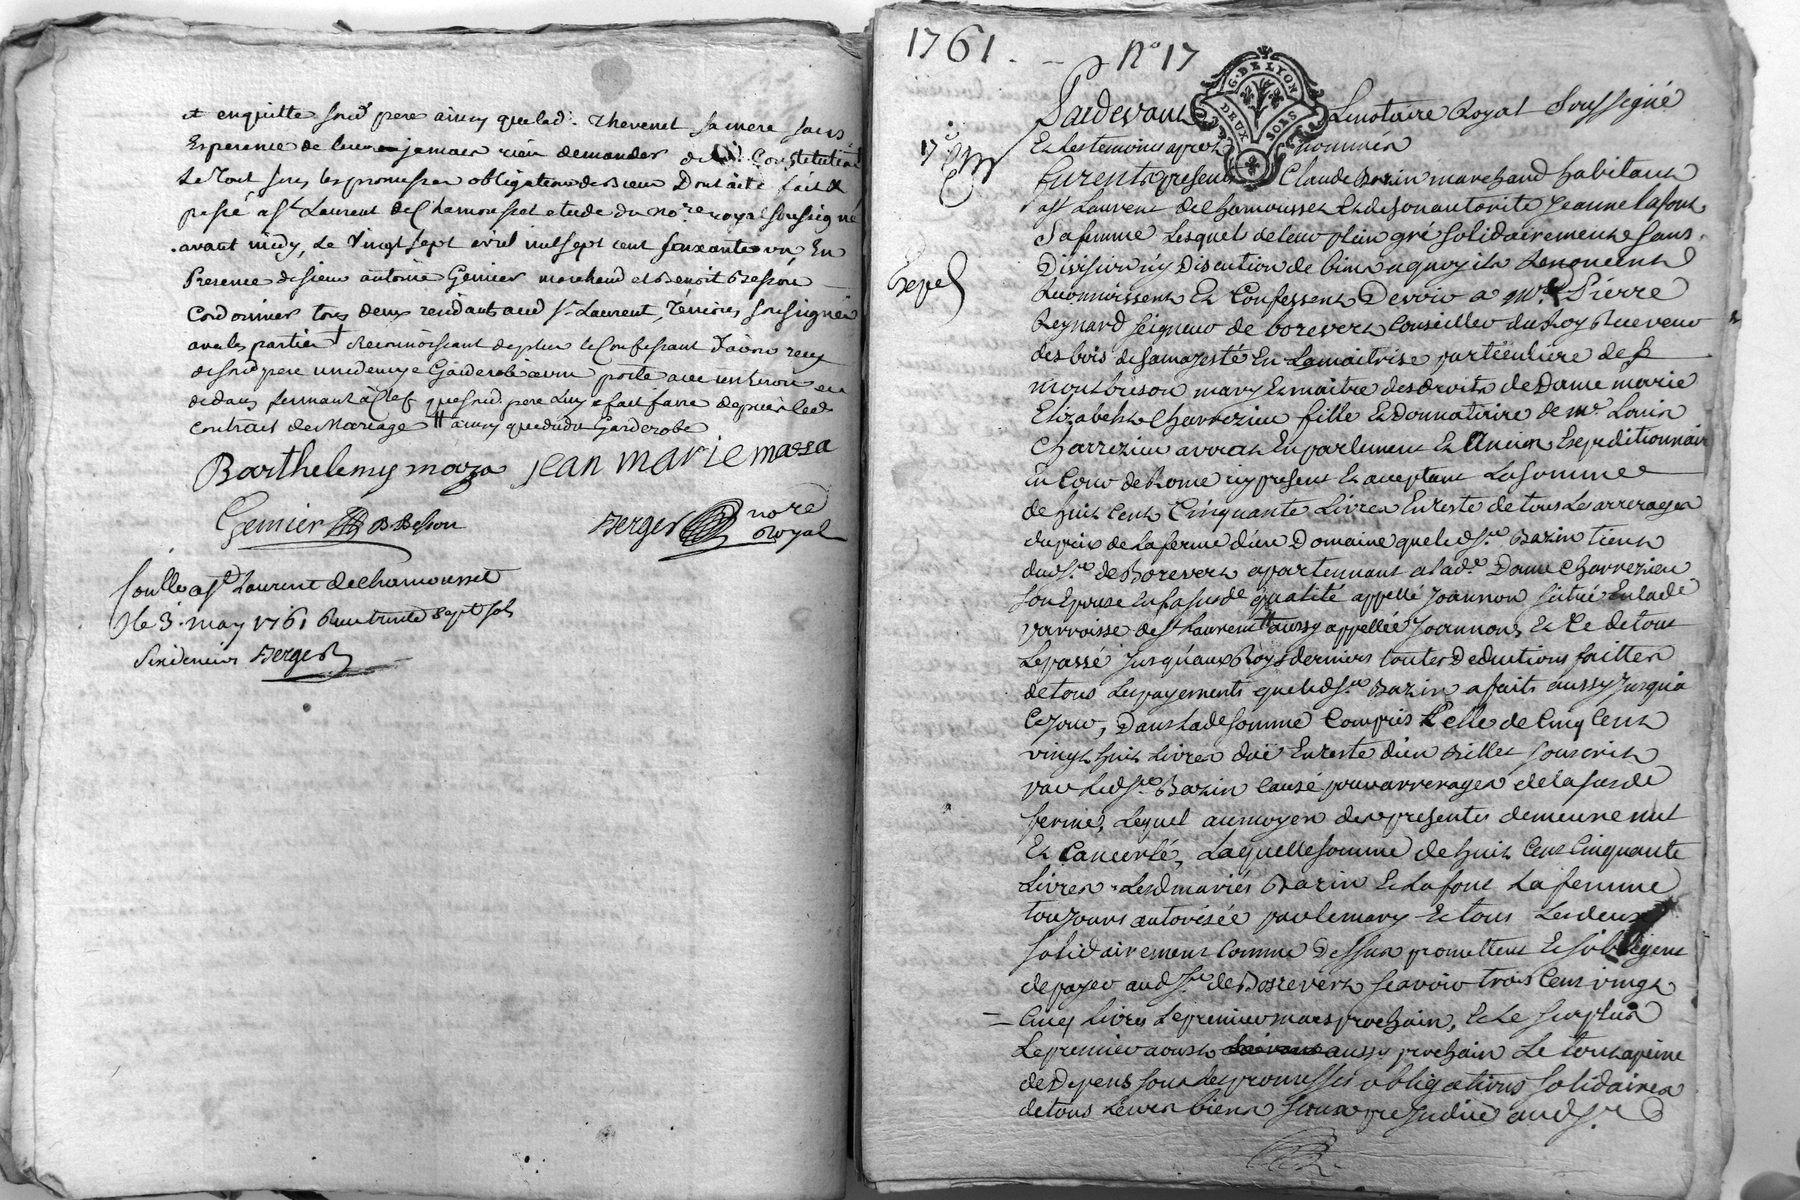 et enquitte sond. pere ainsy que lad. thevenet sa mere sans
Esperence de leur jamais rien demander de Constitution
Le tout sous les promesses obligations de Biens Dont acte fait &
passé a St. Laurent de Chamousset etude du nore. royal soussigné
avant midy, Le vingt sept avril mil sept cent soixante un En
Presence de sieur antoine Gemier marchand et Benoit Besson
Cordonnier tous deux residants aud. St. Laurent, témoins soussignés
avec les parties † Reconnoissant de plus le Confessant D'avoir recu
de sond pere une demy Garderobe avec porte avec un tiroir en
dedans fermant à Clef que sond. pere luy a fait faire depuis led.
contrat de Mariage †† ainsy que dudit Garderobe
Barthelemy maza jean marie massa
Gemier B Besson Berger nore
Royal
Conllé a St Laurent de chamousset
le 3. may 1761 Recu trente sept sols
six deniers Berger
1761. - No 17
Pardevant Le notaire Royal Soussigné
Et les temoins apres nommés
17
furent presents Claude Bazin marchand habitant
a St Laurent de Chamousset Et de son autorité Jeanne Lafont
Sa femme Lesquels de leur plein gré solidairement sans
Division ny Discution de biens a quoy ils Renoncent
Exped
Reconnoissent Et Confessent Devoir a Mre. Pierre
Reynard seigneur de borevert Conseiller du Roy Receveur
des bois de sa majesté En La maitrise particuliere de
montbrison mary Et maitre des droits de Dame marie
Elizabeth Charrezieu fille Et Donnataire de Mr. Louis
Charrezieu avocat En parlement Et Ancien Expeditionnaire
En Cour de Rome icy present Et acceptant La somme
de huit Cent Cinquante Livres En reste de tous Les arrerages
du prix de La ferme d'un Domaine que led. Sr. Bazin tient
dud. Sr. de Borevert apartennant a lad. Dame Charrezieu
son Epouse En sa susde qualité appellé Joannon situé En lade
parroisse de St Laurent †† aussy appellée Joannon, Et Ce de tout
Le passé Jusqu'aux Roys derniers toutes Deductions faittes
de tous Les payements que led. Sr. Bazin a faits aussy Jusqu'a
Ce Jour, Dans lade somme Compris Celle de Cinq Cent
vingt huit Livres due En reste d'un Billet souscrit
par led. Sr. Bazin Causé pour arrerages de la susde
ferme, Lequel au moyen des presentes demeure nul
Et Cancerlé, Laquelle somme de huit Cent Cinquante
Livres Lesd mariés Bazin Et Lafont La femme
toujours autorisée par le mary Et tous Les deux
solidairement Comme Dessus promettent Et s'obligent
de payer aud. Sr. de Borevert scavoir trois Cent vingt
Cinq Livres Le premier mars prochain, Et Le surplus
Le premier aoust aussy prochain Le tout a peine
de Depens sous Les promesses obligations solidaires
de tous Leurs biens sans prejudice aud Sr.